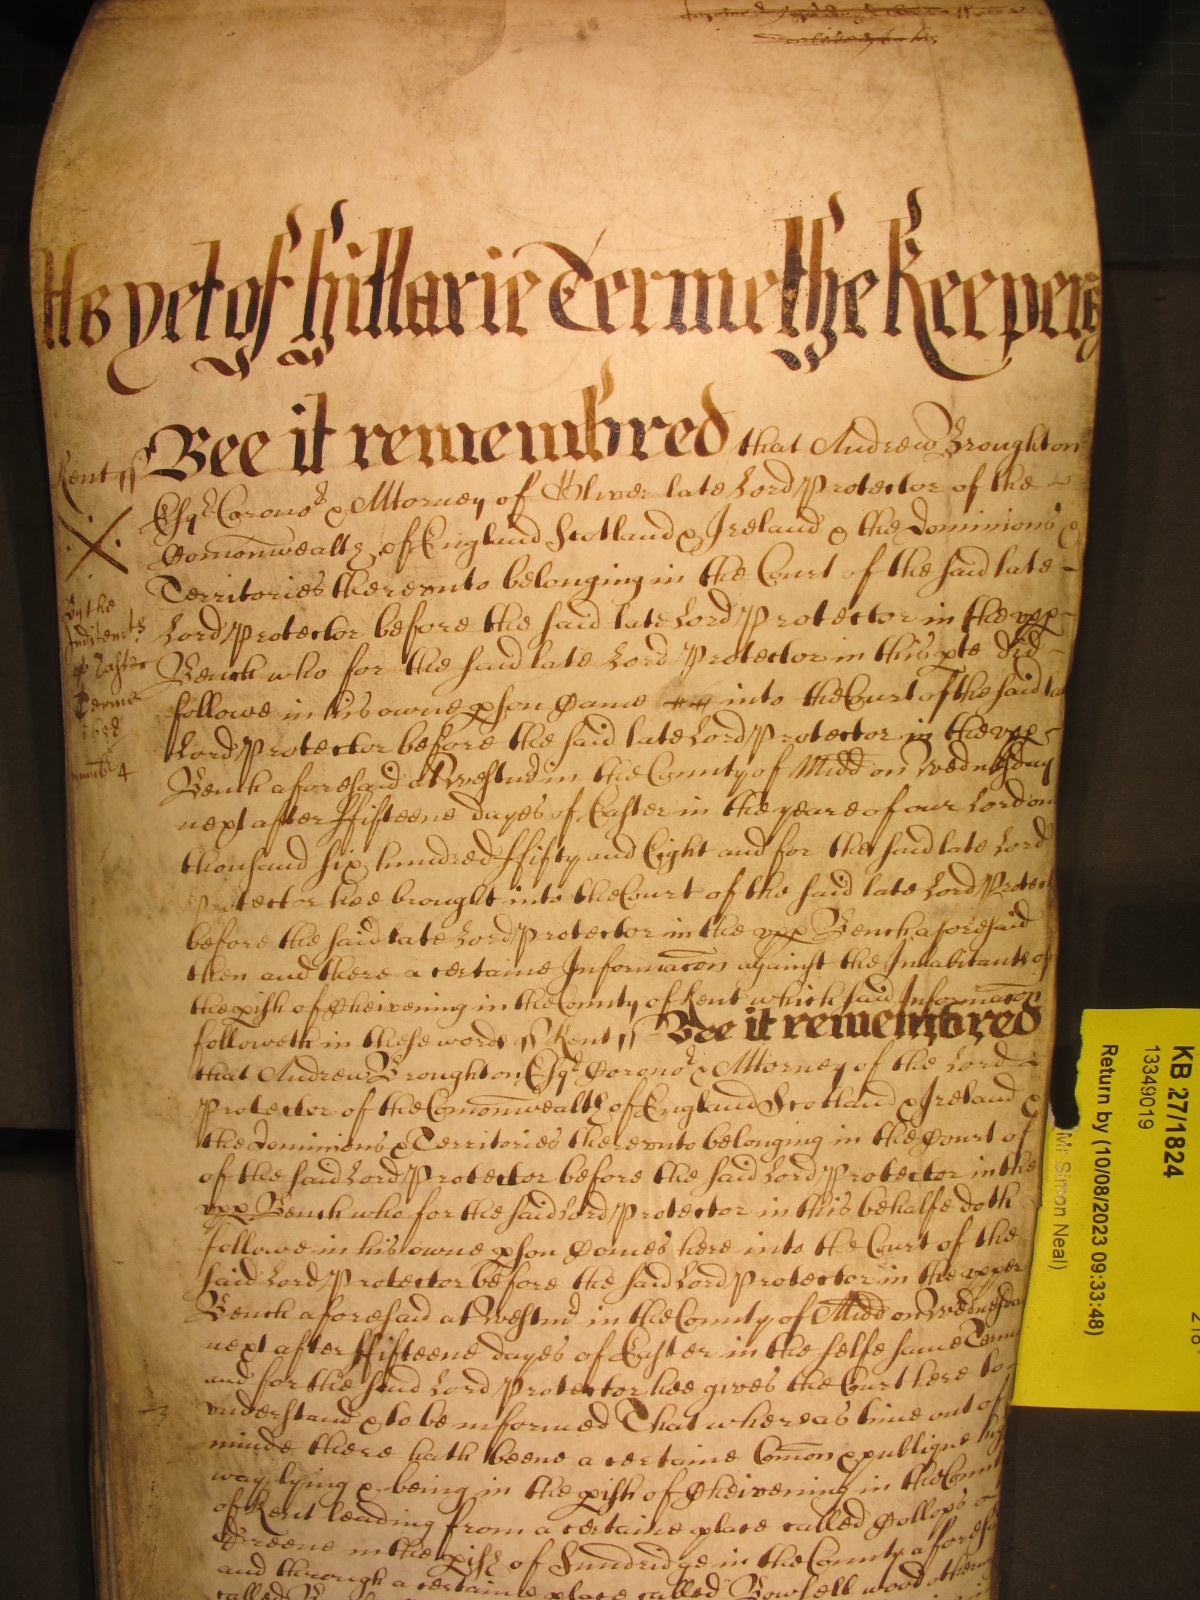 As yet of Hillarie Terme the Keepers
Kent ss Bee it remembred that Andrew Broughton
Esqr Corono & Attorney of Oliver late Lord Protector of the
Comonwealth of England Scotland & Ireland & the Dominions &
Territories thereunto belonging in the Court of the said late
Lord Protector before the said late Lord Protector in the upp
Bench who for the said late Lord Protector in this pte did
followe in his owne pson Came into the Court of the said la
Lord Protector before the said late Lord Protector in the upp
Bench aforesaid at Westm in the County of Midd on Wednesday
next after ffifteene dayes of Easter in the yeare of our Lord on
thousand six hundred ffifty and Eight and for the said late Lord
Protector hee brought into the Court of the said late Lord Protect
before the said late Lord Protector in the upp Bench aforesaid
then and there a certaine Informacon against the Inhabitants of
the pish of Cheivening in the County of Kent which said Informacon
followeth in these words ss Kent ss Bee it remembred
that Andrew Broughton Esqr Corono & Attorney of the Lord
Protector of the Comonwealth of England Scotland & Ireland &
the Dominions & Territories thereunto belonging in the Court of
of the said Lord Protector before the said Lord Protector in the
upp Bench who for the said Lord Protector in this behalfe doth
followe in his owne pson Comes here into the Court of the
said Lord Protector before the said Lord Protector in the upper
Bench aforesaid at Westm in the County of Midd on Wednesda
next after ffifteene dayes of Easter in the selfe same Terme
and for the said Lord Protector hee gives the Court here to
understand & to be informed That whereas time out of
minde there hath beene a certaine Comon & publique hig
way lying & being in the pish of Cheivening in the Count
of Kent leading from a certaine place called Gollops
Greene in the pish of Sundridge in the County aforesa
and through a certaine place called Bowsell wood otherw
called
By the
Inditemts
of Easter
Terme
1658
numb 4
KB 27/1824
13349019
Return by (10/08/2023 09:33:48)
Mr Simon Neal)